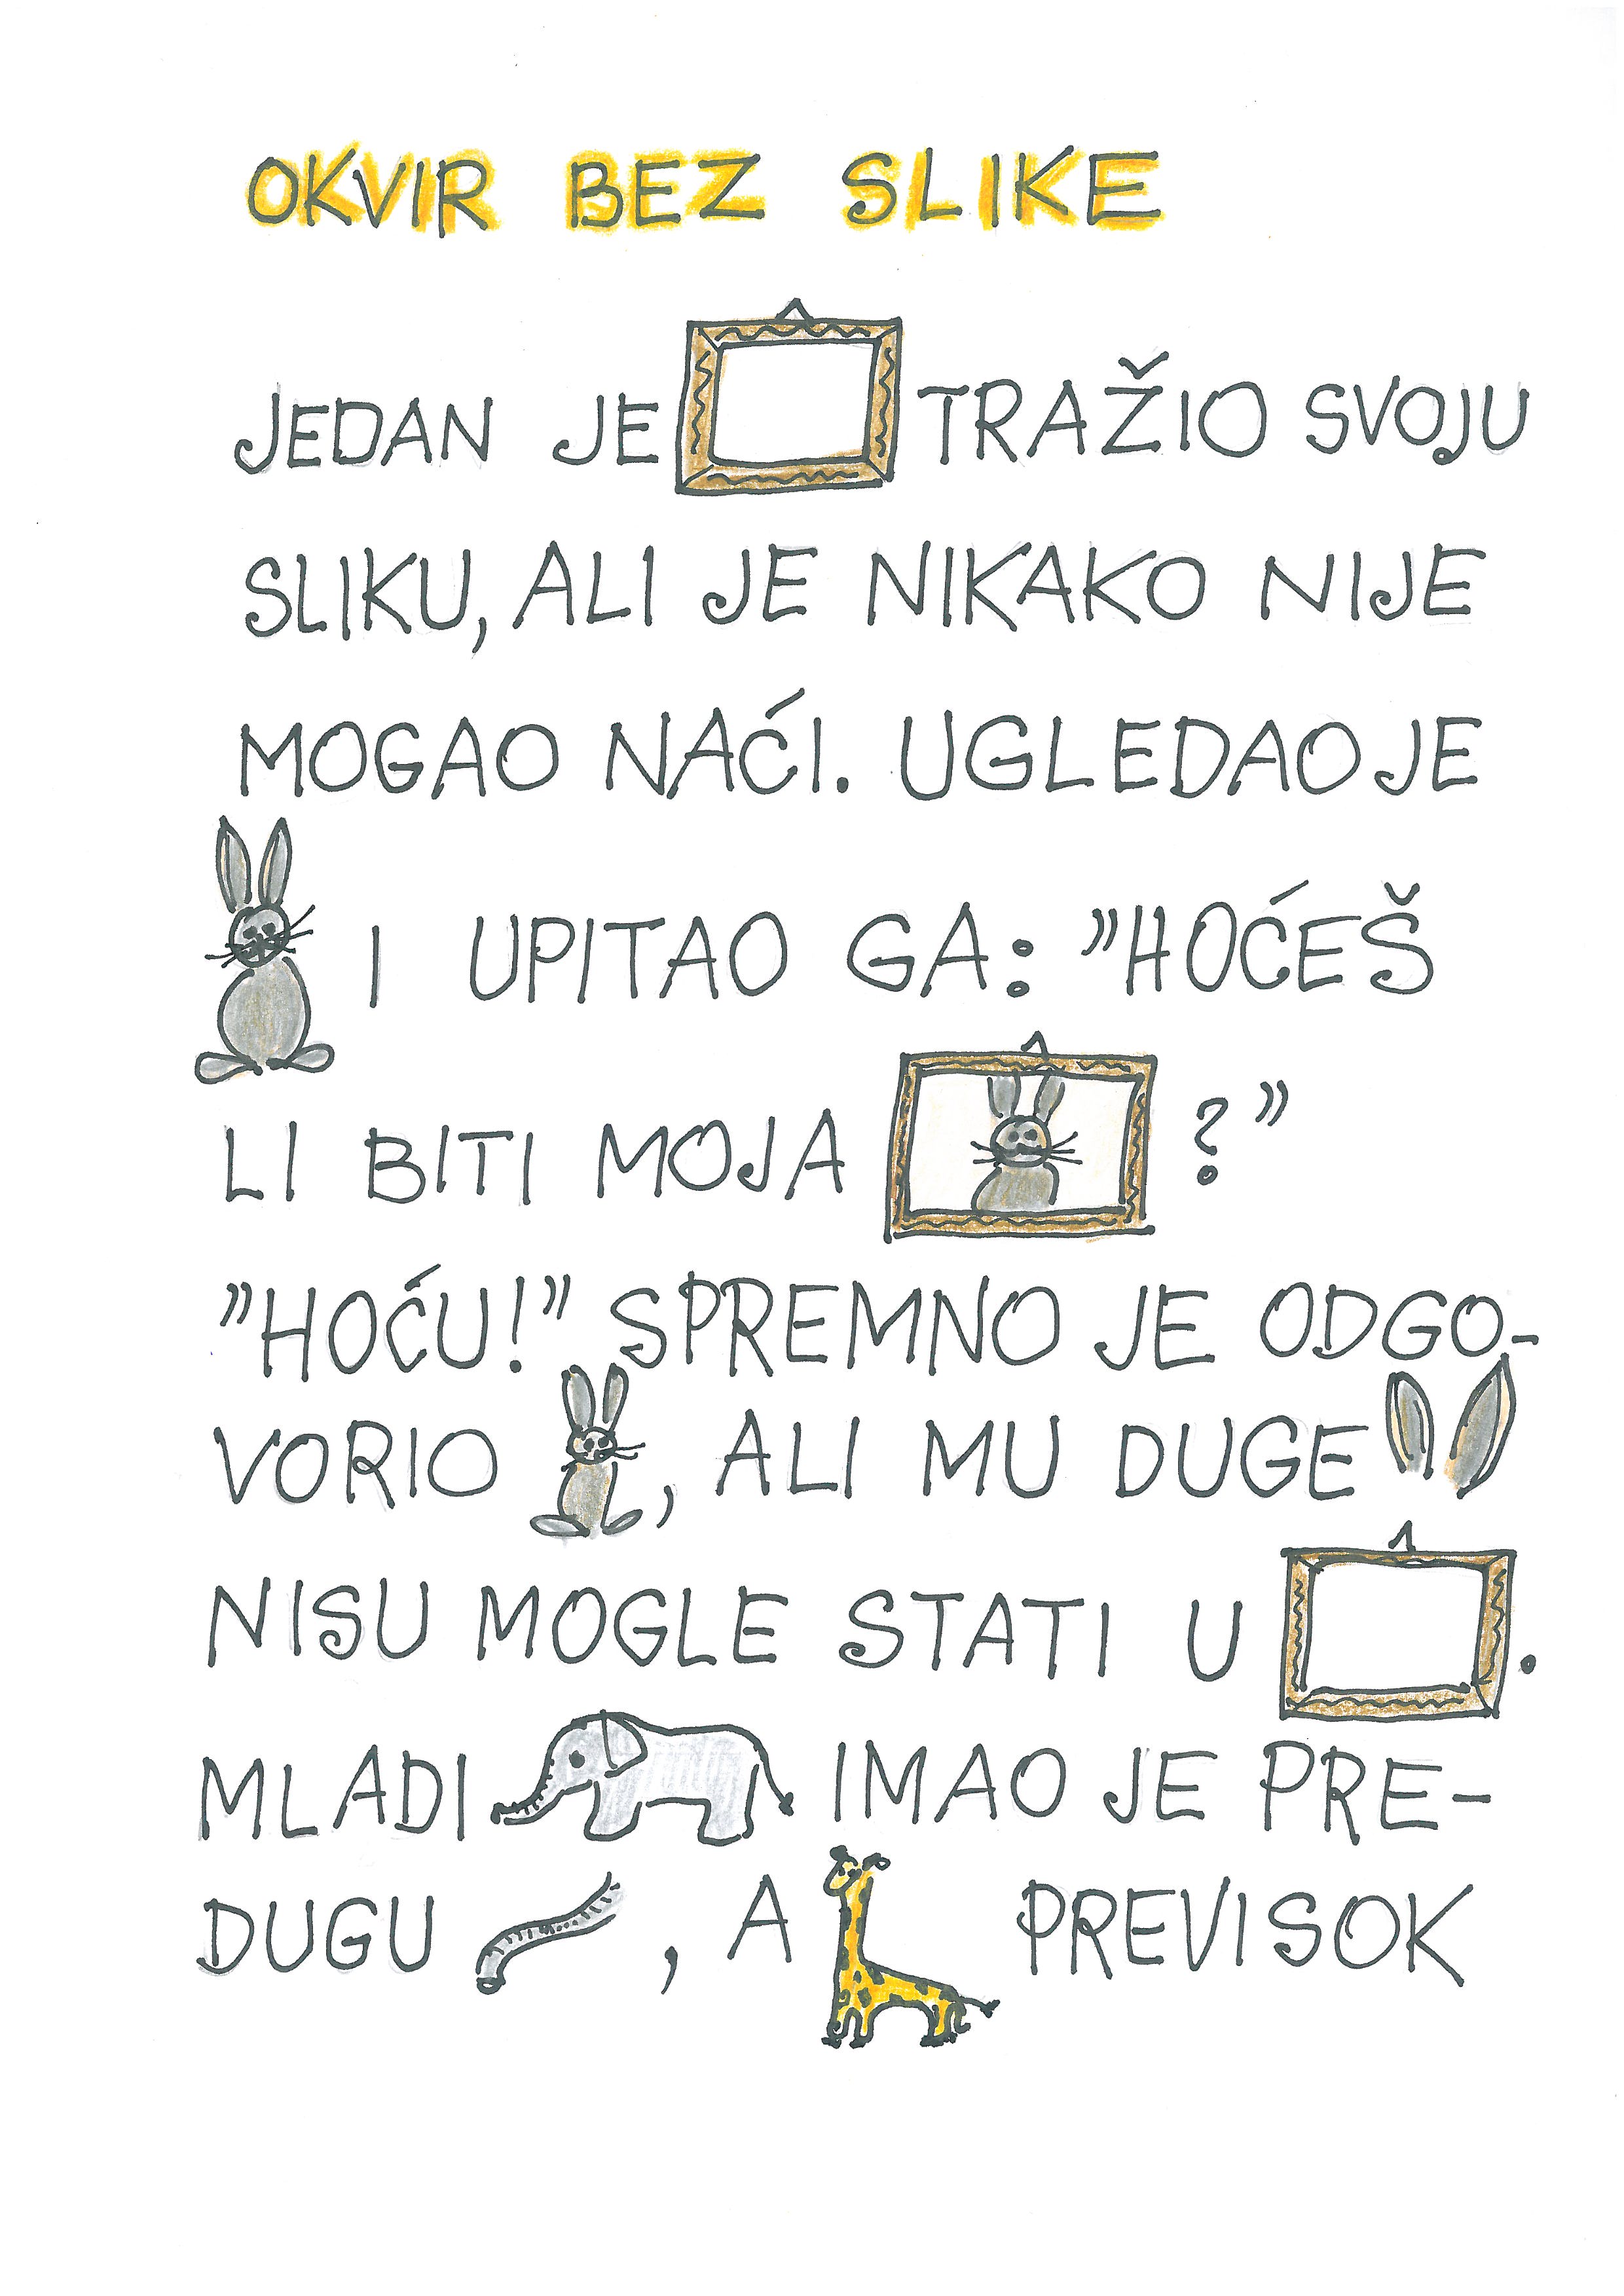 OKVIR BEZ SLIKE
JEDAN JE TRAŽIO SVOJU
SLIKU, ALI JE NIKAKO NIJE
MOGAO NAĆI. UGLEDAO JE
I UPITAO GA: ”HOĆEŠ
LI BITI MOJA ?”
”HOĆU!” SPREMNO JE ODGO-
VORIO , ALI MU DUGE
NISU MOGLE STATI U .
MLADI IMAO JE PRE-
DUGU , A PREVISOK